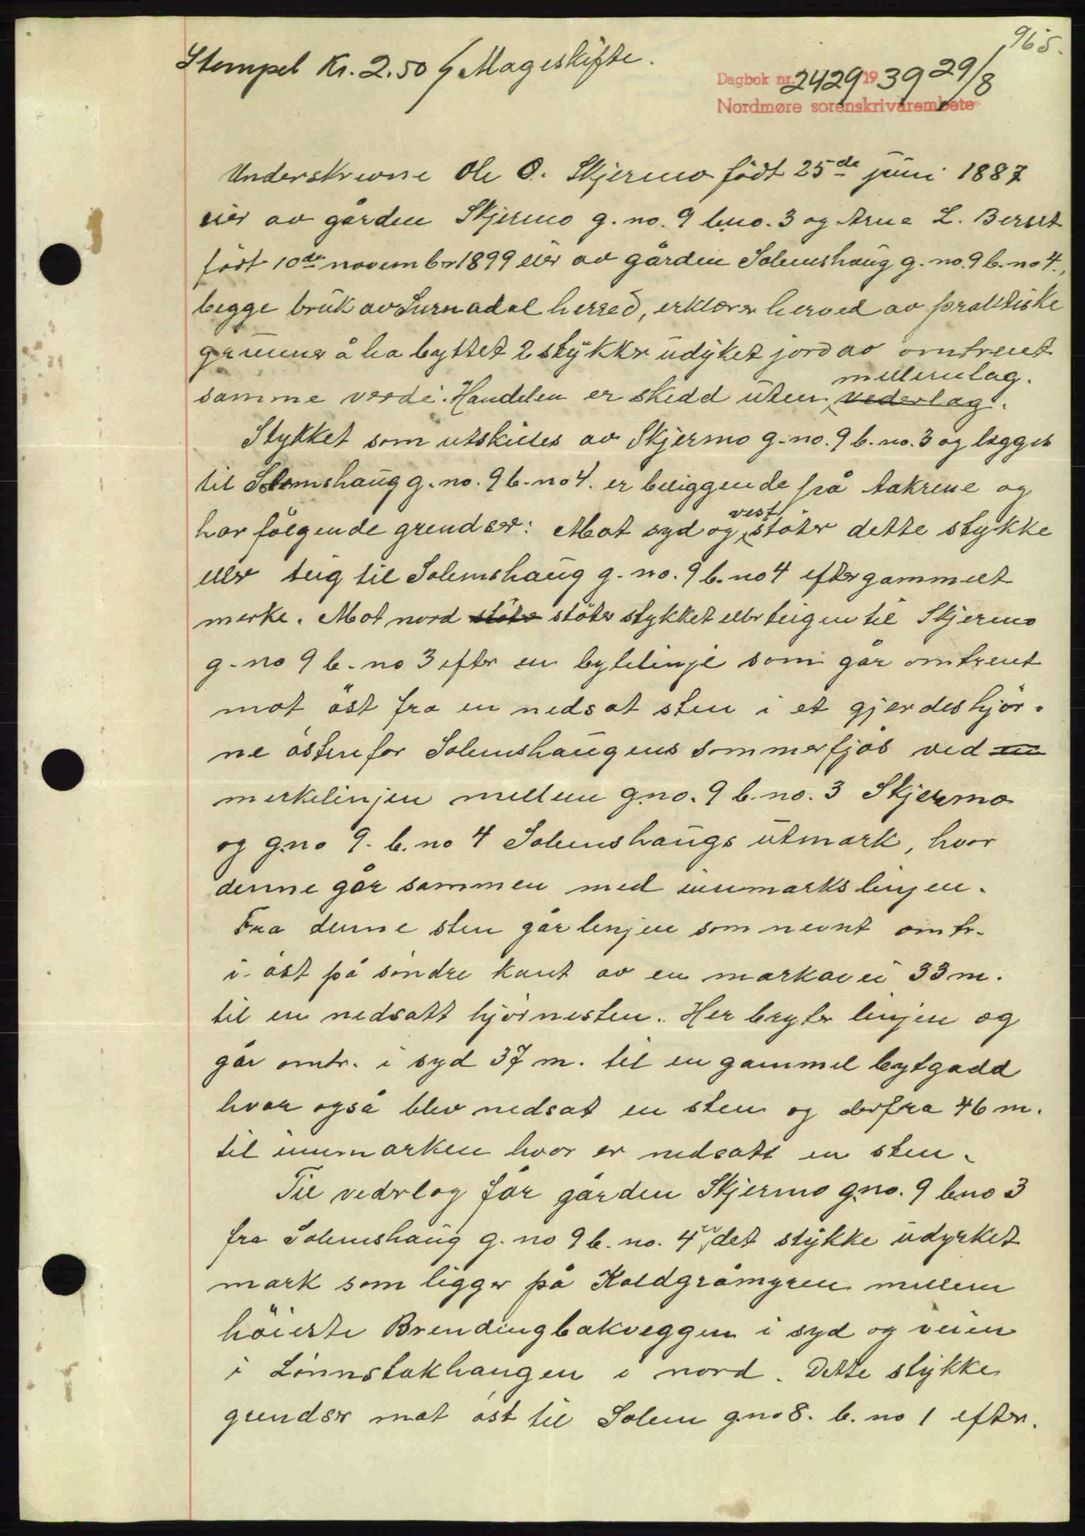 965.
Stempel Kr. 2.50 Mageskifte.
Dagbok nr. 2429 1939 29/8
Nordmøre sorenskrivarembete
Underskrevne Ole O. Skjermo födt 25de juni 1887
eier av gården Skjermo g. no. 9 b.no. 3 og Arne L. Berset
födt 10de november 1899 eier av gården Solemshaug g. no. 9 b. no 4.,
begge bruk av Surnadal herred, erklærer herved av praktiske
grunner å ha byttet 2 stykker udyket jord av omtrent
mellemlag.
samme verdi. Handelen er skedd uten vederlag.
Stykket som utskilles av Skjermo g. no. 9 b. no. 3 og legges
til Solemshaug g. no. 9 b. no 4. er beliggende på Aakrene og
vest
har fölgende grendser: Mot syd og stöter dette stykke
eller teig til Solemshaug g. no. 9 b. no 4 efter gammelt
merke. Mot nord stöter stöter stykket eller teigen til Skjermo
g. no 9 b. no 3 efter en bytelinje som går omtrent
mot öst fra en nedsat sten i et gjerdeshjör-
ne östenfor Solemshaugens sommerfjös ved en
merkelinjen mellem g.no. 9 b. no. 3 Skjermo
og g.no 9. b. no 4 Solemshaugs utmark, hvor
denne går sammen med innmarkslinjen.
Fra denne sten går linjen som nevnt omtr.
i öst på söndre kant av en markavei 33 m.
til en nedsatt hjörnesten. Her bryter linjen og
går omtr. i syd 37 m. til en gammel bytgadd
hvor også blev nedsat en sten og derfra 46 m.
til innmarken hvor er nedsatt en sten.
Til vederlag får gården Skjermo g.no. 9 b.no 3
fra Solemshaug g. no 9 b. no. 4 det stykke udyrket
mark som ligger på Kaldgråmyren mellem
höieste Brendingbakveggen i syd og veien
i Lönnstakhaugen i nord. Dette stykke
grendser mot öst til Solem g.no 8. b. no 1 efter.